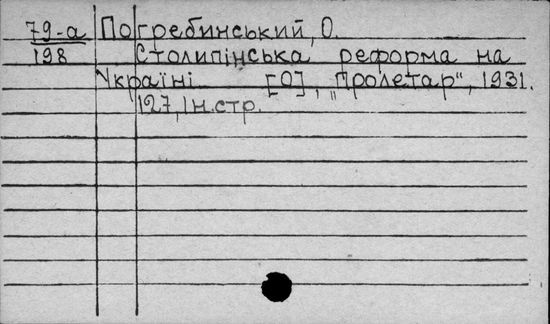 79-а Погребинський, О.
198 Столипінська реформа на
Україні [О], „Пролетар“, 1931.
127, Iн.стр.